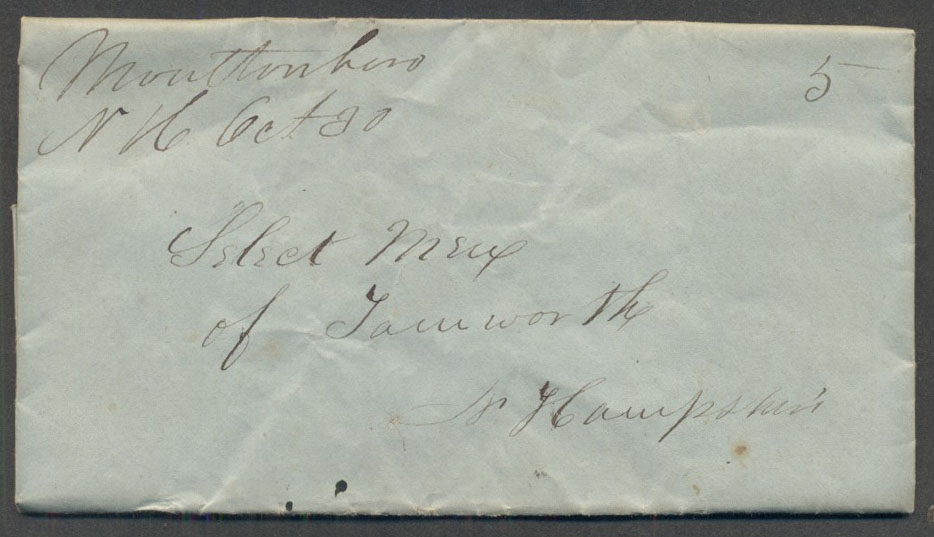 Moultonboro
5
N H Oct 20
Select Men
of Tamworth
N Hampshire